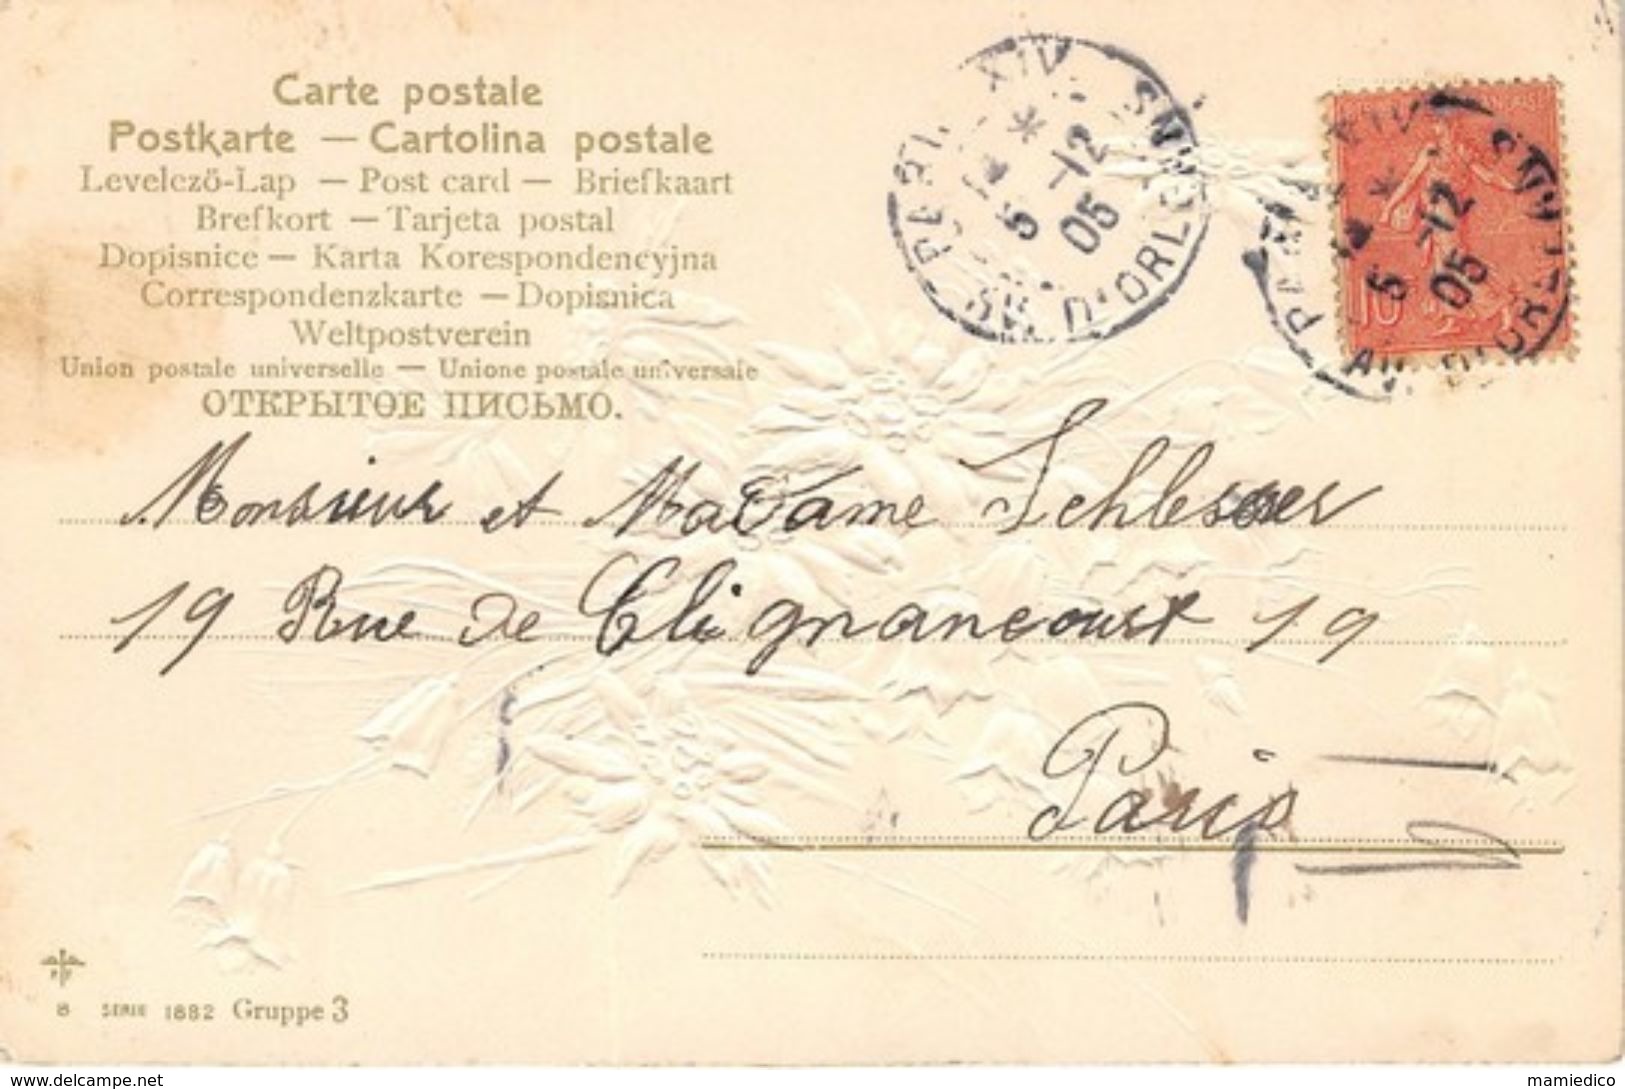 Carte postale
Postkarte — Cartolina postale
Levelező-Lap — Post card — Briefkaart
Brefkort — Tarjeta postal
Dopisnice — Karta Korespondencyjna
Correspondenzkarte — Dopisnica
Weltpostverein
Union postale universelle — Unione postale universale
ОТКРЫТОЕ ПИСЬМО.
PARIS XIV
*
5 -12
05
AV. D'ORLEANS
PARIS XIV
*
5 -12
05
AV. D'ORLEANS
10
Monsieur et Madame Schlesser
19 Rue de Clignancourt 19
Paris
8 SERIE 1882 Gruppe 3
mamiedico